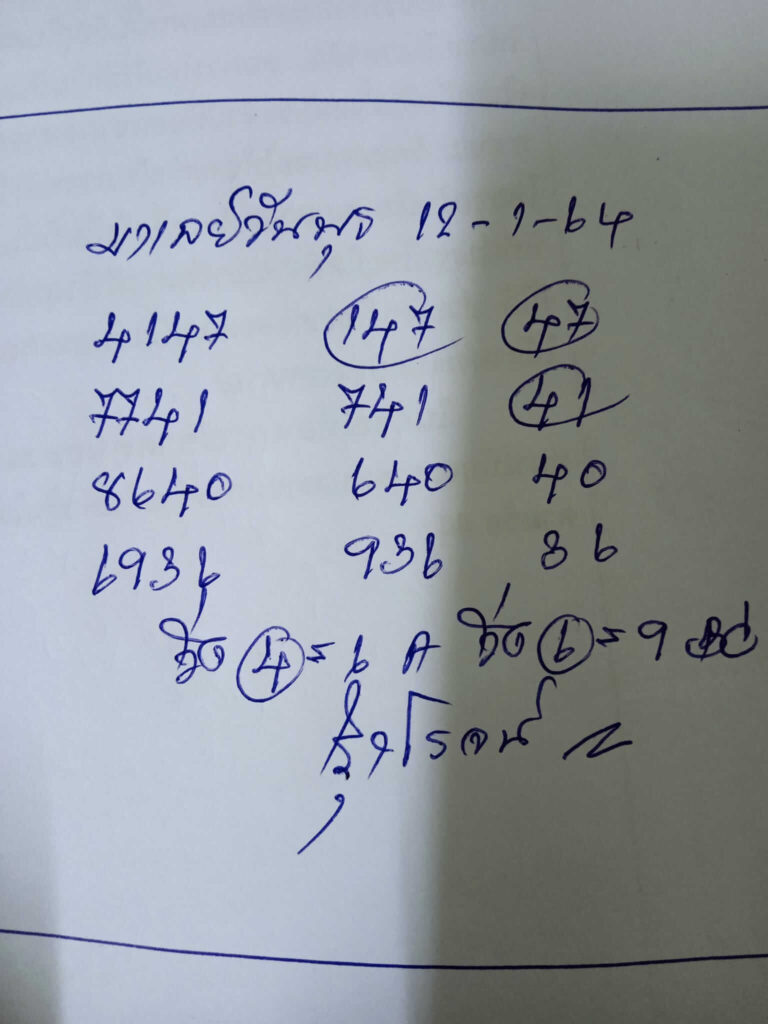 มาเลย์วันพุธ 12-1-64
4147 147 47
7741 741 41
8640 640 40
6936 936 36
วิ่ง 4 = 6 A วิ่ง 6 = 9